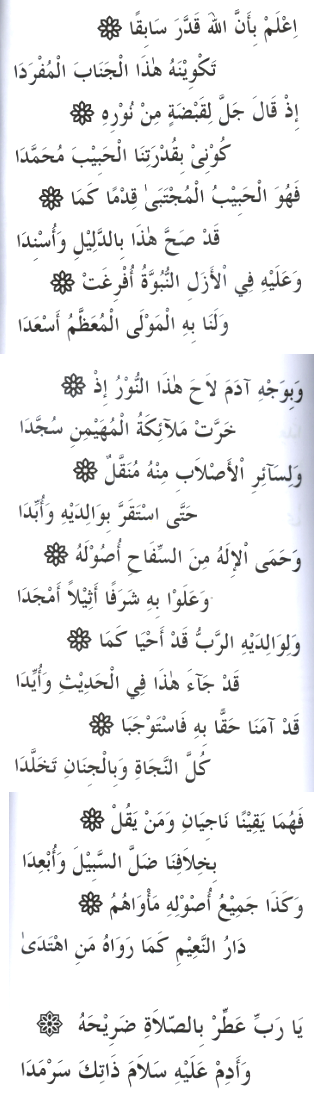 اِعْلَمْ بِأَنَّ اللّٰهَ قَدَّرَ سَابِقًا ❁
تَكْوِيْنَهُ هٰذَا الْجَنَابَ الْمُفْرَدَا
إِذْ قَالَ جَلَّ لِقَبْضَةٍ مِنْ نُوْرِهِ ❁
كُوْنِيْ بِقُدْرَتِنَا الْحَبِيْبَ مُحَمَّدَا
فَهُوَ الْحَبِيْبُ الْمُجْتَبَىٰ قِدْمًا كَمَا ❁
قَدْ صَحَّ هٰذَا بِالدَّلِيْلِ وَأُسْنِدَا
وَعَلَيْهِ فِي الْأَزَلِ النُّبُوَّةُ أُفْرِغَتْ ❁
وَلَنَا بِهِ الْمَوْلَى الْمُعَظَّمُ أَسْعَدَا
وَبِوَجْهِ آدَمَ لاَحَ هٰذَا النُّوْرُ إِذْ ❁
خَرَّتْ مَلَآئِكَةُ الْمُهَيْمِنِ سُجَّدَا
وَلِسَآئِرِ الْأَصْلاَبِ مِنْهُ مُنَقَّلٌ ❁
حَتَّى اسْتَقَرَّ بِوَالِدَيْهِ وَأُبِّدَا
وَحَمَى الْإِلَهُ مِنَ السِّفَاحِ أُصُوْلَهُ ❁
وَعَلَوْا بِهِ شَرَفًا أَثِيْلاً أَمْجَدَا
وَلِوَالِدَيْهِ الرَّبُّ قَدْ أَحْيَا كَمَا ❁
قَدْ جَآءَ هٰذَا فِي الْحَدِيْثِ وَأُيِّدَا
قَدْ آمَنَا حَقًّا بِهِ فَاسْتَوْجَبَا ❁
كُلَّ النَّجَاةِ وَبِالْجَنَانِ تَخَلَّدَا
فَهُمَا يَقِيْنًا نَاجِيَانِ وَمَنْ يَقُلْ ❁
بِخِلاَفِنَا ضَلَّ السَّبِيْلَ وَأُبْعِدَا
وَكَذَا جَمِيْعُ أُصُوْلِهِ مَأْوَاهُمُ ❁
دَارُ النَّعِيْمِ كَمَا رَوَاهُ مَنِ اهْتَدَىٰ
يَا رَبِّ عَطِّرْ بِالصّلاَةِ ضَرِيْحَهُ ❁
وَأَدِمْ عَلَيْهِ سَلاَمَ ذَاتِكَ سَرْمَدَا